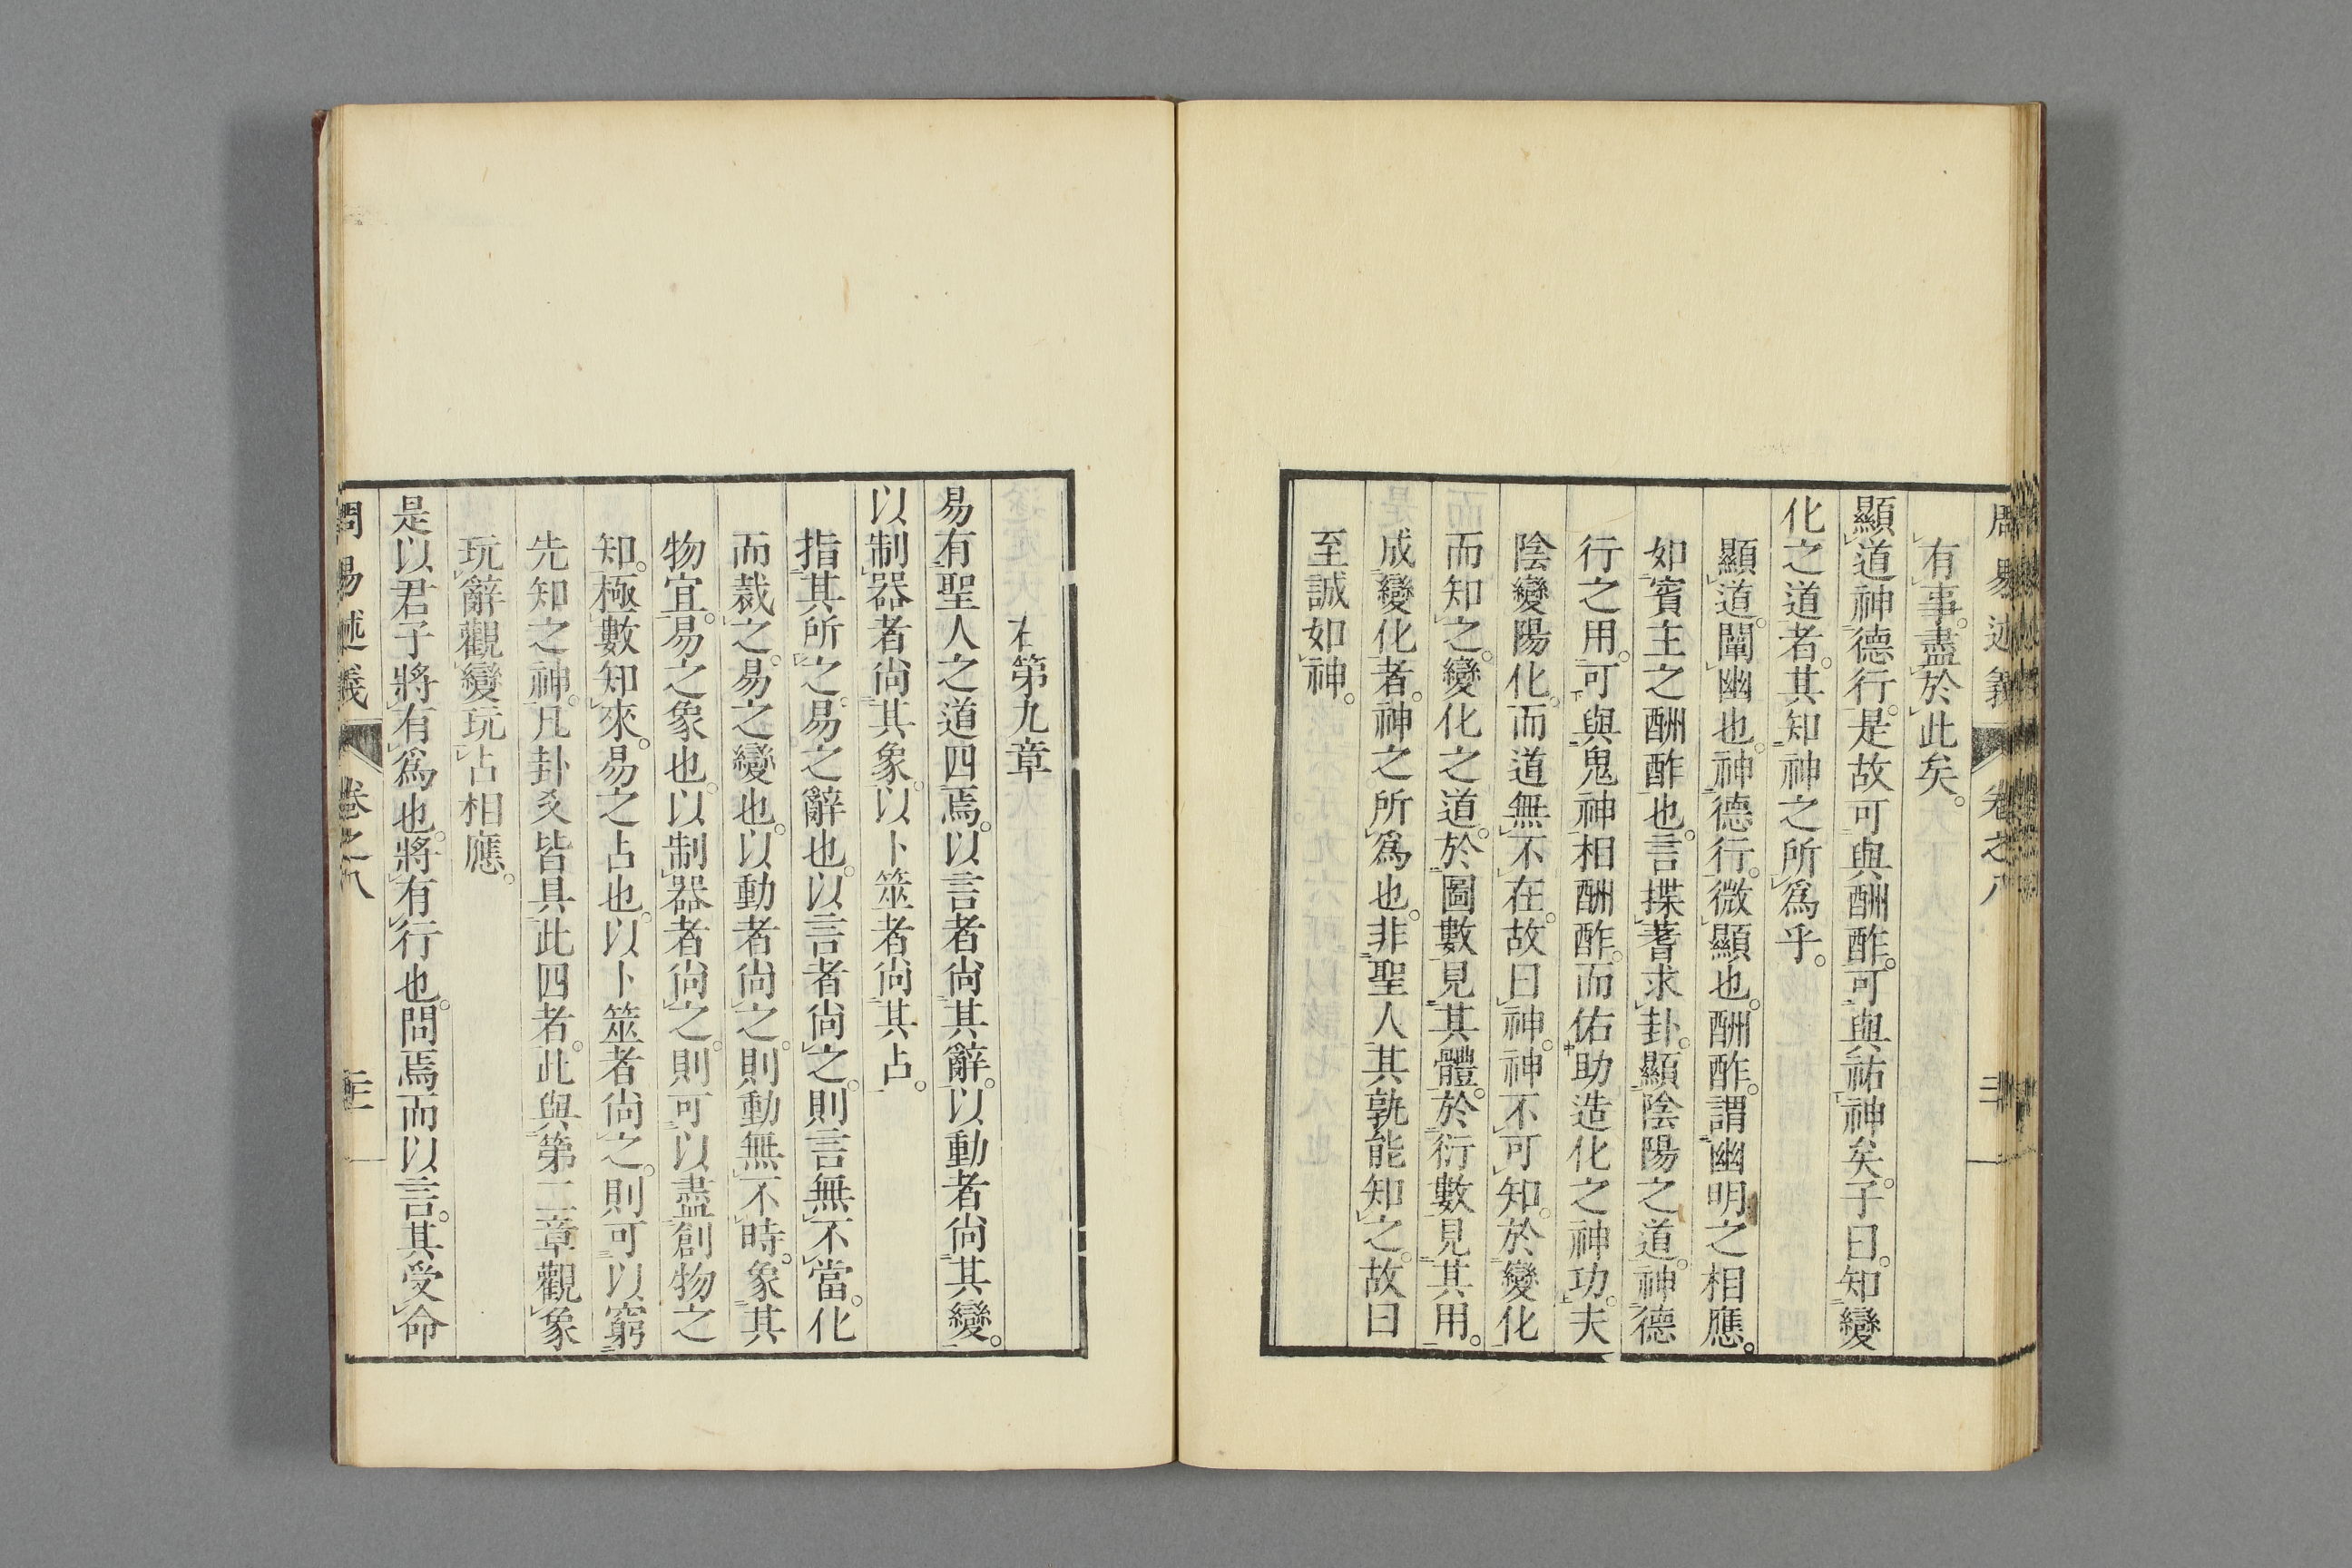 周易述義 卷之八
有事。盡於此矣。
顯道神德行。是故可與酬酢。可與祐神矣。子曰。知變
化之道者。其知神之所爲乎。
顯道。闡幽也。神德行。微顯也。酬酢。謂幽明之相應。
如賓主之酬酢也。言揲蓍求卦。顯陰陽之道。神德
行之用。可與鬼神相酬酢。而佑助造化之神功。夫
陰變陽化。而道無不在。故曰神。神不可知。於變化
而知之。變化之道。於圖數見其體。於衍數見其用。
成變化者。神之所爲也。非聖人其孰能知之。故曰
至誠如神。
右第九章
易有聖人之道四焉。以言者尙其辭。以動者尙其變。
以制器者尙其象。以卜筮者尙其占。
指其所之。易之辭也。以言者尙之。則言無不當。化
而裁之。易之變也。以動者尙之。則動無不時。象其
物宜。易之象也。以制器者尙之。則可以盡創物之
知。極數知來。易之占也。以卜筮者尙之。則可以窮
先知之神。凡卦爻皆具此四者。此與第二章觀象
玩辭觀變玩占相應。
是以君子將有爲也。將有行也。問焉而以言。其受命
周易述義 卷之八